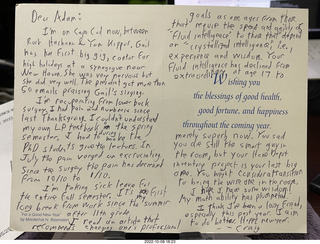 Dear Adam:
I'm on Cape Cod now, between
Rosh Hashana & Yom Kippur. Gail
has her first big gig, cantor for
high holiday at a synagogue near
New Haven. She was very nervous but
she did very well. The president got more than
50 emails praising Gail's singing.
I'm recuperating from back
surgery. I had pain and numbness since
last Thanksgiving. I couldn't understand
my own lecture in the spring
semester. I had to
PhD students lectures. In
July the pain verged on excruciating.
Since the surgery the pain has decreased
from 10/10 to 1/10.
I'm taking sick leave for
the entire fall semester. It's the first
long break from work since the summer
after 11th grade.
I read an article that
recommends changing one's professional
For a Good New Year
goals as one ages from those
that require the speed and agility of
"fluid intelligence" to those that depend
on "crystallized intelligence", i.e.,
experience and wisdom. Your
fluid intelligence has declined from
extraordinary at age 17 to
Wishing you
the blessings of good health,
good fortune, and happiness
throughout the coming year.
merely superb now. You said
you are still the smart guy in
the room, but your
inventory project is your last big
one. You might consider transition
to being the wise one in the room.
I have some wisdom!
My math ability has plummeted.
I think I've been a lousy friend,
especially this past year. I aim
to do better in the new year.
- Craig
2022-10-08 18:23